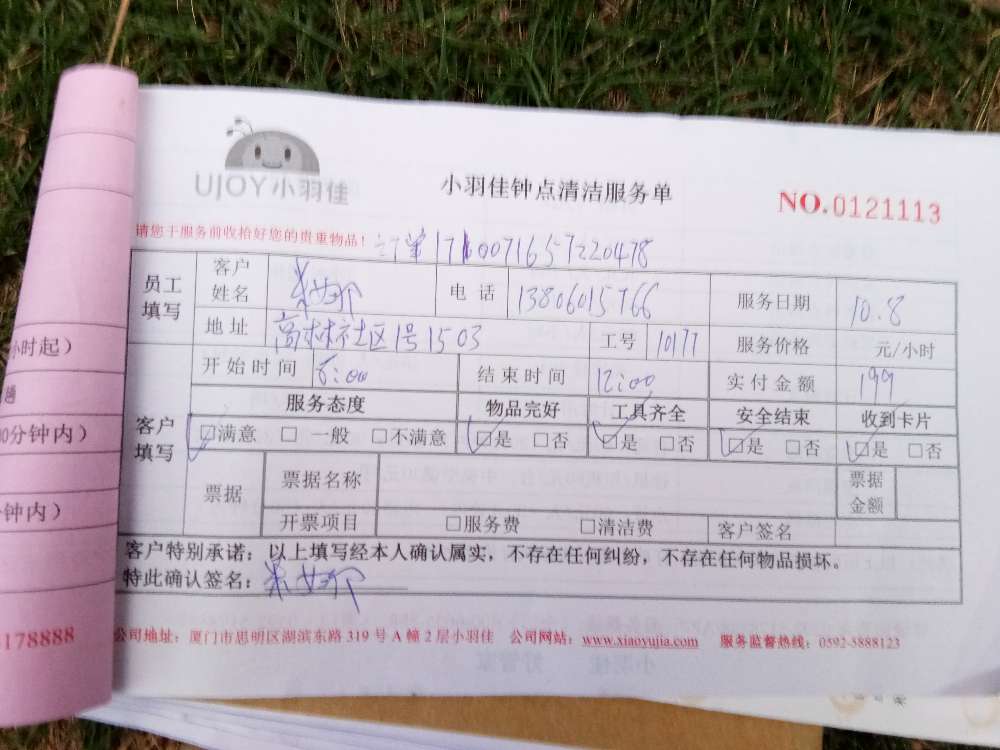 UJOY小羽佳
小羽佳钟点清洁服务单
NO.0121113
请您于服务前收拾好您的贵重物品!
订单1710071657220478
员工填写 客户姓名 电话 服务日期 10.8
地址 高林社区1号1503 工号 10177 服务价格 元/小时
开始时间 8:00 结束时间 12:00 实付金额 199
客户填写 服务态度 物品完好 工具齐全 安全结束 收到卡片
☑满意 □一般 □不满意 ☑是 □否 ☑是 □否 ☑是 □否 ☑是 □否
票据 票据名称 票据金额
开票项目 □服务费 □清洁费 客户签名
客户特别承诺：以上填写经本人确认属实，不存在任何纠纷，不存在任何物品损坏。
特此确认签名：
公司地址：厦门市思明区湖滨东路 319 号 A 幢 2 层小羽佳 公司网站：www.xiaoyujia.com 服务监督热线：0592-5888123
小时起）
0分钟内）
钟内）
178888